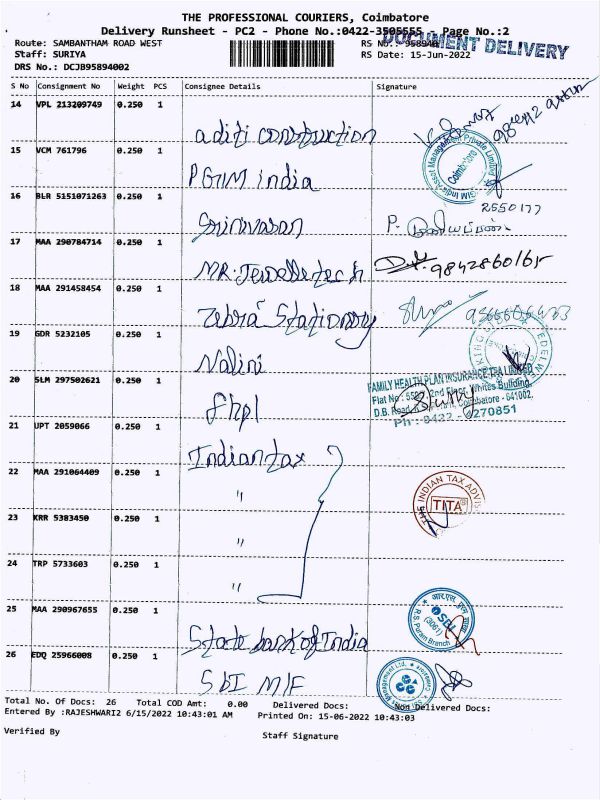 THE PROFESSIONAL COURIERS, Coimbatore
Delivery Runsheet - PC2 - Phone No.:0422-3505555 - Page No.:2
Route: SAMBANTHAM ROAD WEST
RS No.: 958940
DOCUMENT DELIVERY
Staff: SURIYA
RS Date: 15-Jun-2022
DRS No.: DCJB95894002
S No Consignment No Weight PCS Consignee Details Signature
14 VPL 213209749 0.250 1
aditi construction
15 VCM 761796 0.250 1
PGIM india
PGIM India Asset Management Private Limited
Coimbatore
16 BLR 5151071263 0.250 1
2550177
Srinivasan P.
17 MAA 290784714 0.250 1
MR. Jewelletech 9842860165
18 MAA 291458454 0.250 1
Zebra Stationery
19 GDR 5232105 0.250 1
Nalini
20 SLM 297502621 0.250 1
FAMILY HEALTH PLAN INSURANCE TPA LIMITED
2nd Floor, Whites Building,
D.B. Road, Coimbatore - 641002.
Ph - 0422 - 4270851
fhpl
21 UPT 2059066 0.250 1
Indian tax
22 MAA 291064409 0.250 1
"
THE INDIAN TAX ADVIS
TITA
23 KRR 5383450 0.250 1
"
24 TRP 5733603 0.250 1
"
25 MAA 290967655 0.250 1
SBI
(3061)
R.S. Puram Branch
State bank of India
26 EDQ 25966008 0.250 1
SBI M/F
Total No. Of Docs: 26 Total COD Amt: 0.00 Delivered Docs: Non Delivered Docs:
Entered By :RAJESHWARI2 6/15/2022 10:43:01 AM Printed On: 15-06-2022 10:43:03
Verified By
Staff Signature